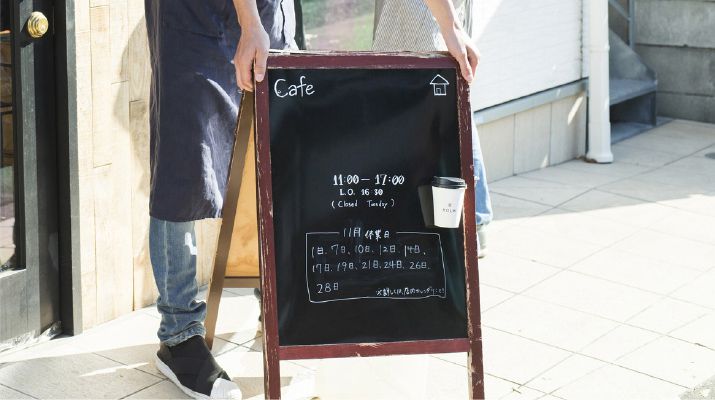 Cafe
11:00 − 17:00
L.O. 16:30
(Closed Tuesday)
11月 休業日
1日、7日、10日、12日、14日、
17日、19日、21日、24日、26日、
28日